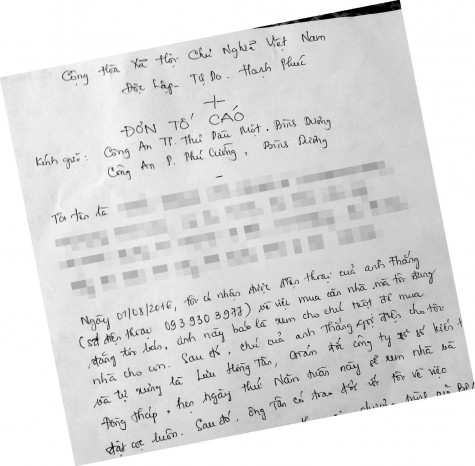 Cộng Hòa Xã Hội Chủ Nghĩa Việt Nam
Độc Lập - Tự Do - Hạnh Phúc
ĐƠN TỐ CÁO
Kính gửi: Công An TP. Thủ Dầu Một, Bình Dương
Công An P. Phú Cường, Bình Dương
Tôi tên là
Ngày 07/03/2016, tôi có nhận được điện thoại của anh Thắng
(số điện thoại 093 930 3977) về việc mua căn nhà mà tôi đang
đăng tin bđs, anh này bảo là xem cho chú ruột để mua
nhà cho con. Sau đó, chú của anh Thắng gọi điện cho tôi
và tự xưng là Lưu Hồng Tân, Giám đốc công ty xổ số kiến t
Đồng Tháp, hẹn ngày thứ Năm tuần này sẽ xem nhà và
đặt cọc luôn. Sau đó, ông Tân có trao đổi với tôi về việc